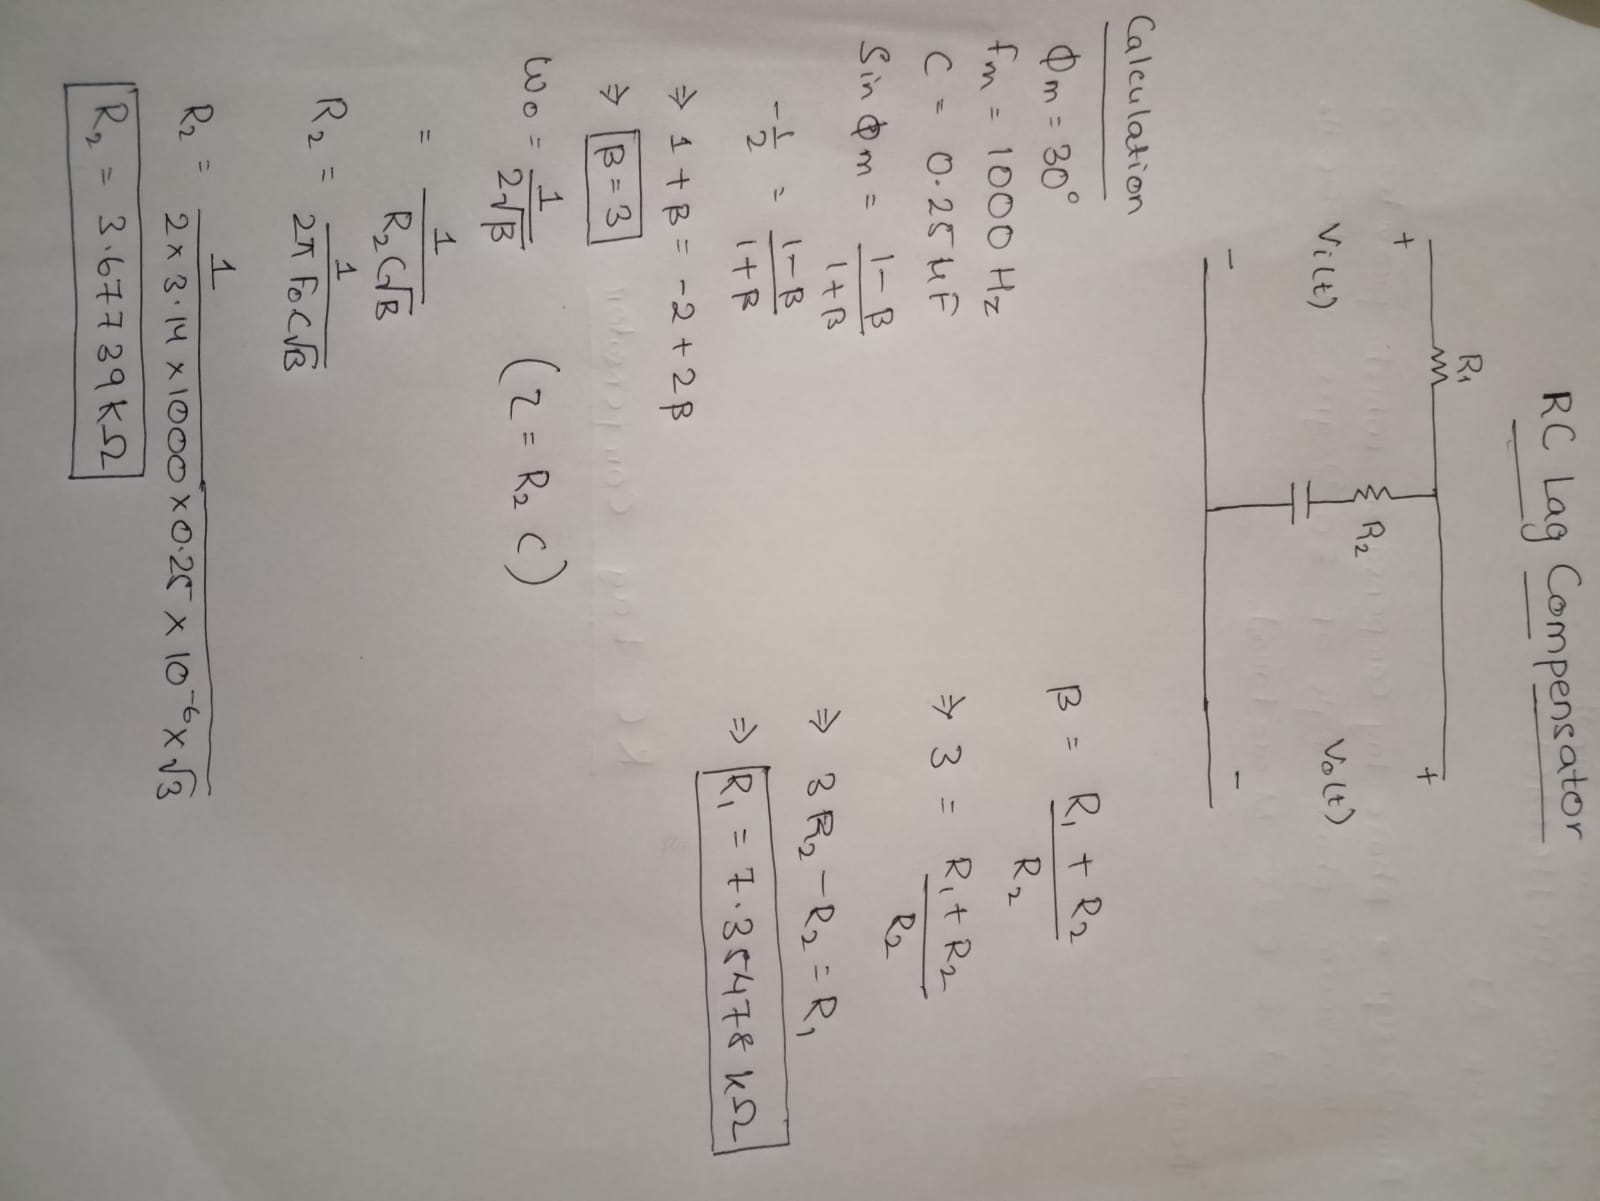 RC Lag Compensator
R₁
+
+
R₂
Vi(t)
Vo(t)
-
-
Calculation
Φm = 30°
fm = 1000 Hz
C = 0.25 µF
Sin Φm = 1-β / 1+β
-1/2 = 1-β / 1+β
⇒ 1 + β = -2 + 2β
⇒ β = 3
ω₀ = 1 / 2√β (τ = R₂ C)
= 1 / R₂C√β
R₂ = 1 / 2π F₀.C√β
R₂ = 1 / 2 x 3.14 x 1000 x 0.25 x 10⁻⁶ x √3
R₂ = 3.67739 KΩ
β = R₁ + R₂ / R₂
⇒ 3 = R₁ + R₂ / R₂
⇒ 3 R₂ - R₂ = R₁
⇒ R₁ = 7.35478 kΩ